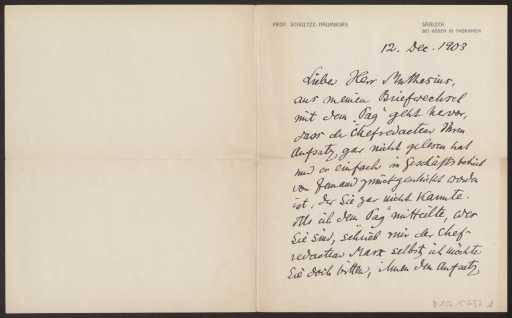 PROF. SCHULTZE-NAUMBURG
SAALECK
BEI KÖSEN IN THÜRINGEN
12. Dec. 1903
Lieber Herr Muthesius,
aus meinem Briefwechsel
mit dem „Tag" geht hervor,
dass der Chefredacteur Ihren
Aufsatz gar nicht gelesen hat
und er einfach im Geschäftsbetrieb
von Jemand zurückgeschickt worden
ist, der Sie gar nicht kannte.
Als ich dem „Tag" mitteilte, wer
Sie sind, schrieb mir der Chef-
redacteur Marx selbst, ich möchte
Sie doch bitten, ihnen den Aufsatz